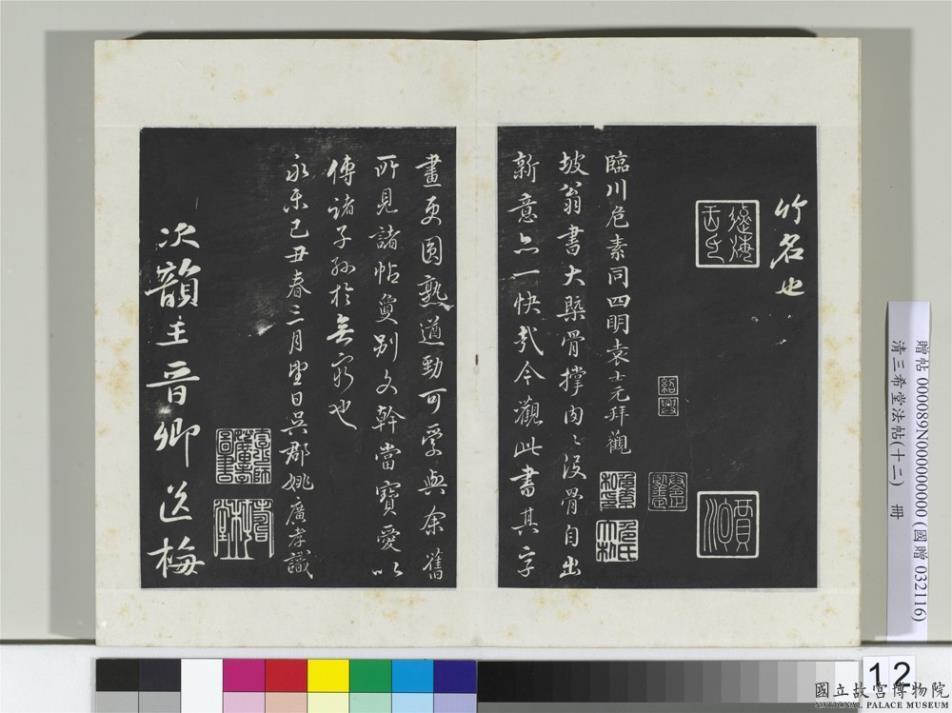 竹名也
臨川危素同四明袁士元拜觀
坡翁書大槩骨撑肉肉沒骨自出
新意亦一快哉今觀此書其字
畫更圓熟遒勁可愛與余舊
所見諸帖敻別文幹當寶愛以
傳諸子孫於無窮也
永樂己丑春三月望日吳郡姚廣孝識
次韻王晉卿送梅
贈帖 000089N000000000 (國贈 032116)
清三希堂法帖(十二) 冊
12
國立故宮博物院
NATIONAL PALACE MUSEUM